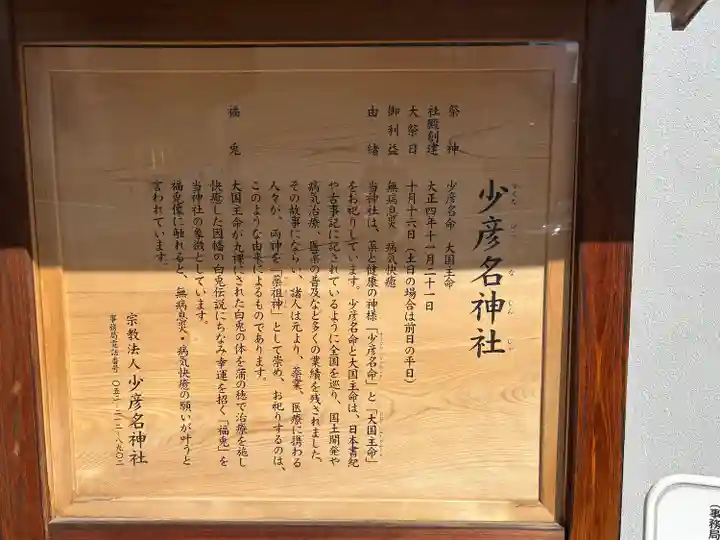 少彦名神社
すくな ひこ な じん じゃ
祭神 少彦名命 大国主命
社殿創建 大正四年十一月二十一日
大祭日 十月十六日(土日の場合は前日の平日)
御利益 無病息災 病気快癒
由緒 当神社は、薬と健康の神様「少彦名命」と「大国主命」
をお祀りしています。少彦名命と大国主命は、日本書紀
や古事記に記されているように全国を巡り、国土開発や
病気治療、医薬の普及など多くの業績を残されました。
その故事にならい、諸人は元より、薬業、医療に携わる
人々が、両神を「薬祖神」として崇め、お祀りするのは、
このような由来によるものであります。
福兎 大国主命が丸裸にされた白兎の体を蒲の穂で治療を施し
快癒した因幡の白兎伝説にちなみ幸運を招く「福兎」を
当神社の象徴としています。
福兎像に触れると、無病息災・病気快癒の願いが叶うと
言われています。
宗教法人 少彦名神社
事務局電話番号
(事務局